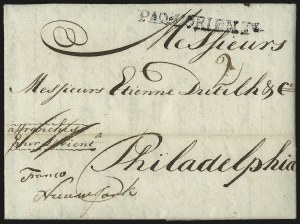 PAQ. L'ORIENT
Messieurs
Messieurs Etienne Dutilh & Co
affranchie
pour L'orient
à
Philadelphia
Franco
New York